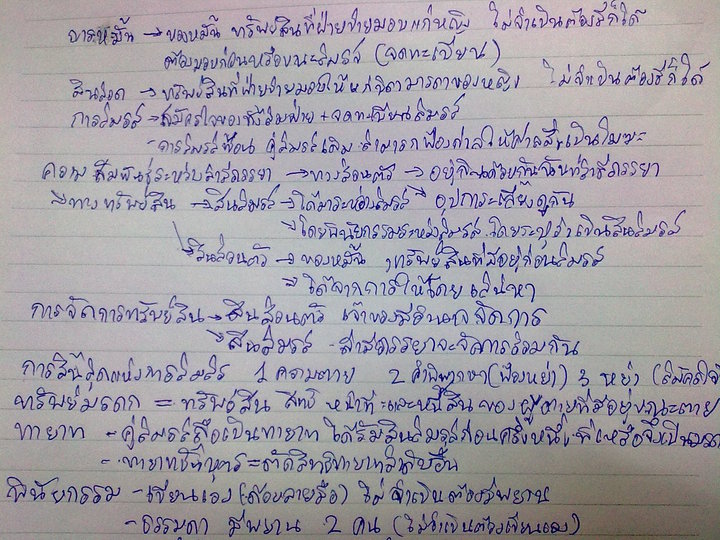 การหมั้น → ของหมั้น ทรัพย์สินที่ฝ่ายชายมอบแก่หญิง ไม่จำเป็นต้องมีก็ได้
ต้องมอบก่อนหรือขณะสมรส (จดทะเบียน)
สินสอด → ทรัพย์สินที่ฝ่ายชายมอบให้แก่บิดามารดาของหญิง ไม่จำเป็นต้องมีก็ได้
การสมรส → สมัครใจของทั้งสองฝ่าย + จดทะเบียนสมรส
- การสมรสซ้อน คู่สมรสเดิม สามารถฟ้องศาลให้ศาลสั่งเป็นโมฆะ
ความสัมพันธ์ระหว่างสามีภรรยา → ทางส่วนตัว → อยู่กินด้วยกันฉันท์สามีภรรยา
→ ทางทรัพย์สิน → สินสมรส → ได้มาระหว่างสมรส → อุปการะเลี้ยงดูกัน
→ โดยพินัยกรรมระหว่างสมรส โดยระบุว่าเป็นสินสมรส
สินส่วนตัว → ของหมั้น , ทรัพย์สินที่มีอยู่ก่อนสมรส
→ ได้จากการให้โดยเสน่หา
การจัดการทรัพย์สิน → สินส่วนตัว เจ้าของมีอำนาจจัดการ
→ สินสมรส สามีภรรยาจะจัดการร่วมกัน
การสิ้นสุดแห่งการสมรส 1 ความตาย 2 คำพิพากษา (ฟ้องหย่า) 3 หย่า (สมัครใจ
ทรัพย์มรดก = ทรัพย์สิน สิทธิ หน้าที่ และหนี้สิน ของผู้ตายที่มีอยู่ขณะตาย
ทายาท - คู่สมรสถือเป็นทายาท ได้รับสินสมรสก่อนครึ่งหนึ่ง ที่เหลือจึงเป็นมรด
- ทายาทชั้นบุตร = ตัดสิทธิทายาทลำดับอื่น
พินัยกรรม - เขียนเอง (ต้องลายมือ) ไม่จำเป็นต้องมีพยาน
- ธรรมดา มีพยาน 2 คน (ไม่จำเป็นต้องเขียนเอง)